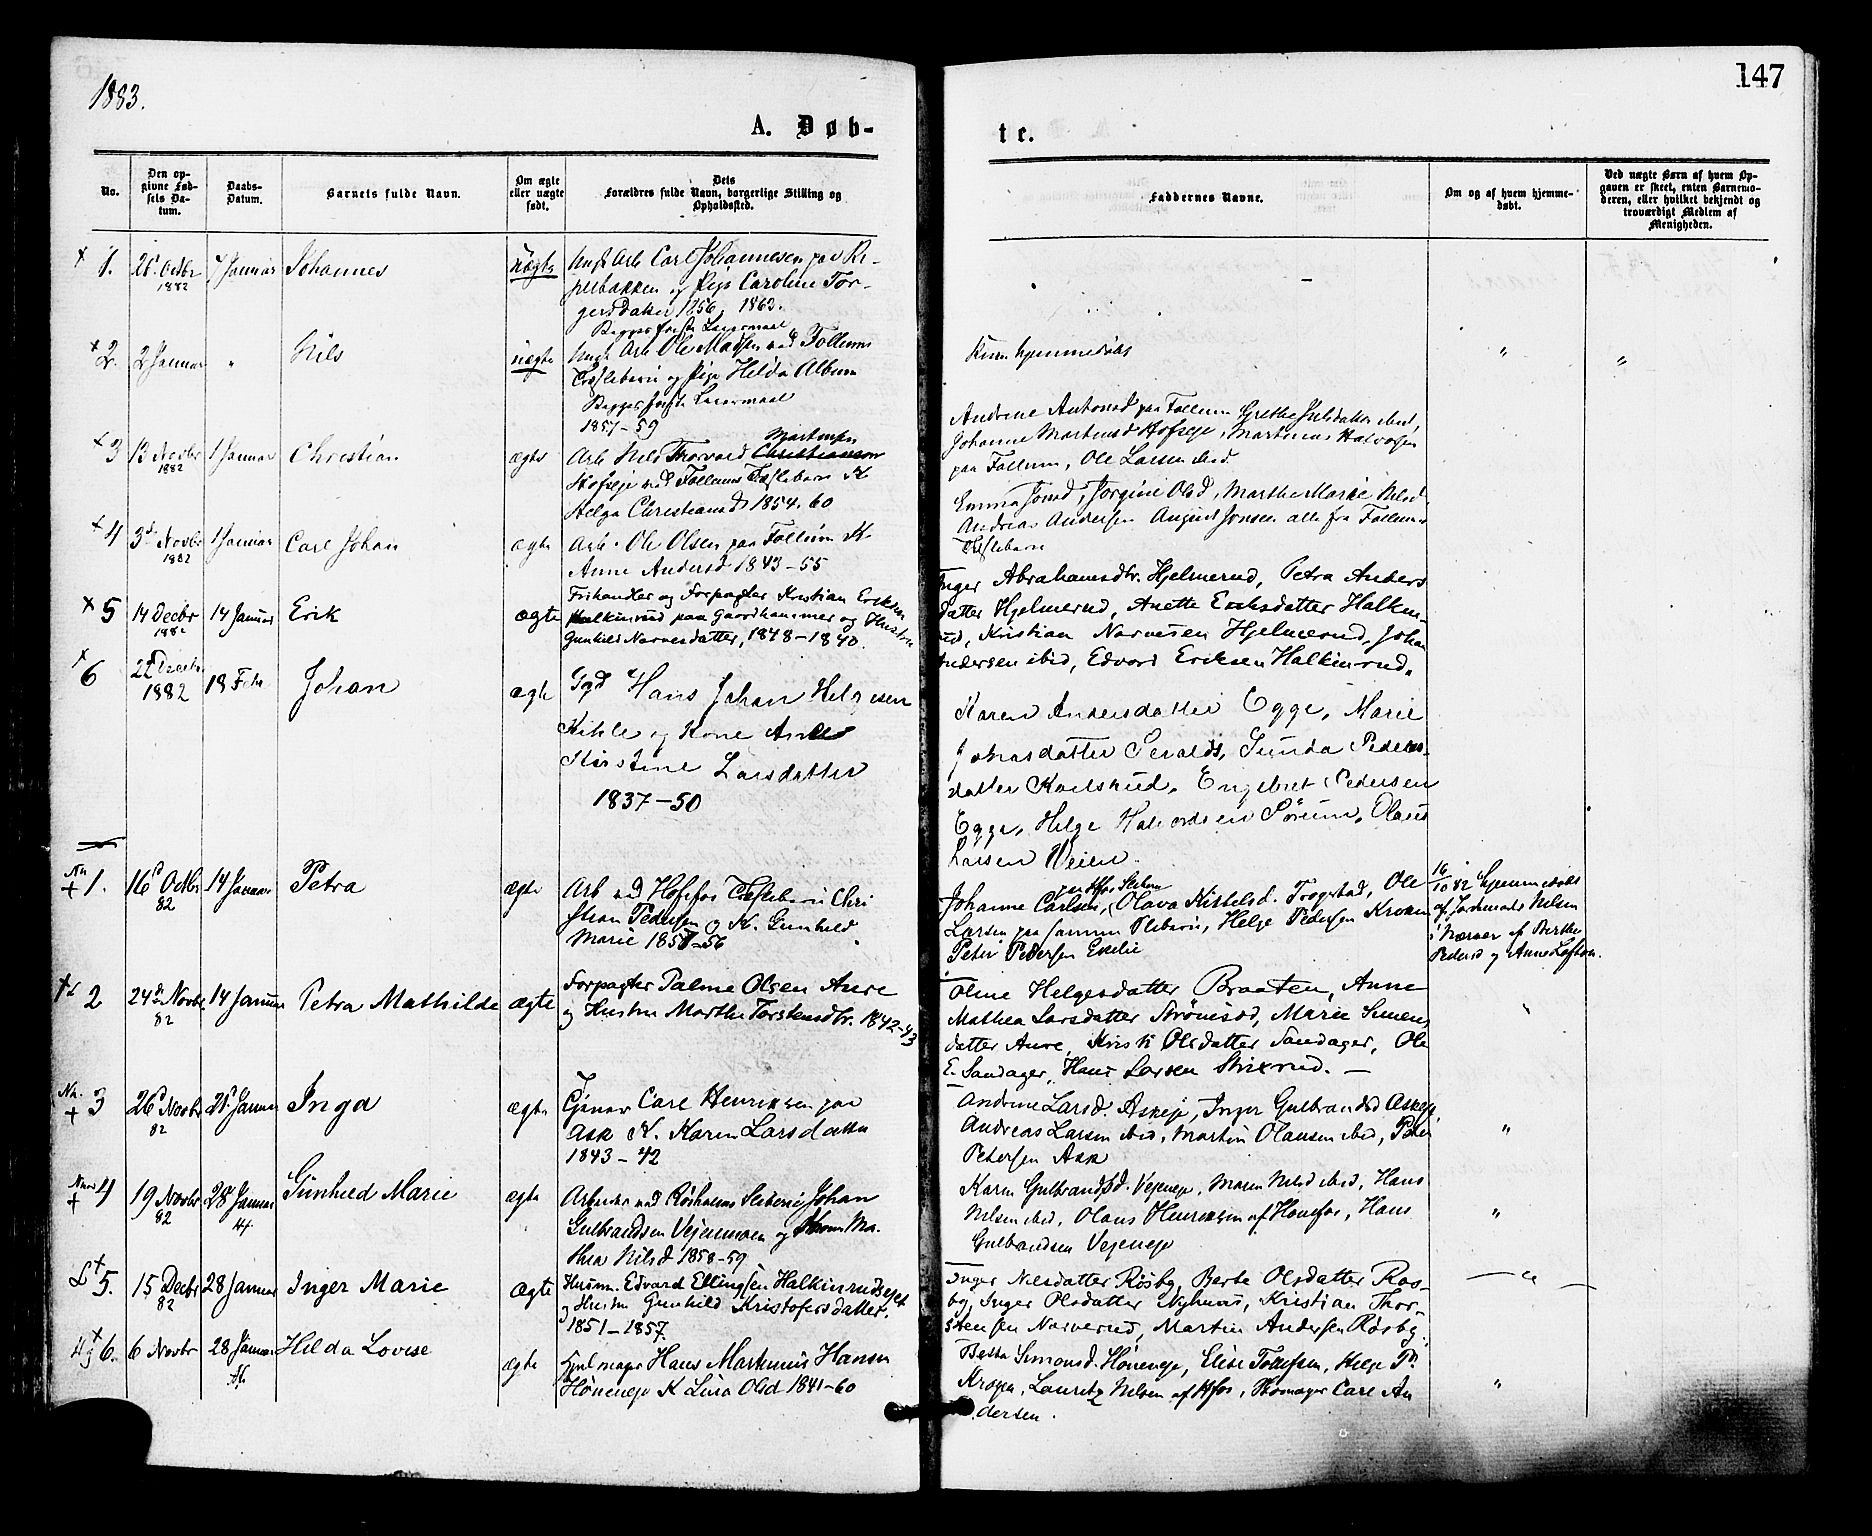 1883.
147
A. Døb-
te.
No.
Den op-
givne Fød-
sels Da-
tum.
Daabs-
Datum.
Barnets fulde Navn.
Om ægte
eller uægte
født.
Dets
Forældres fulde Navn, borgerlige Stilling og
Opholdssted.
Faddernes Navne.
Om og af hvem hjemme-
døbt.
Ved uægte Børn af hvem Op-
gaven er skeet, enten Barnemo-
deren, eller hvilket bekjendt og
troværdigt Medlem af
Menigheden.
+ 1. Octbr 1882 7 Januar Johannes uægte Ungk Arb Carl Johannesen paa
og Pige Caroline Tor-
gersdatter 1856, 1863.
Begges første Leiermaal
+ 2. 2 Januar " Nils uægte Ungk Arb Ole Madsen ved Follums
Træsleberi og Pige Hilda Album
Begges første Leiermaal
1857-59
Kun hjemmedøbt " "
+ 3 13 Novbr 1882 1 Januar Christian ægte Arb Nils Thorvald Christiansen
Martinsen
Hofseje ved Follums Træsleberi K
Helga Christiansd 1854. 60
Andrine Antonsd paa Follum Grethe ibid,
Johanne Martinsd Hofseje, Martinus Halvorsen
paa Follum, Ole Larsen ibid.
+ 4 3 Novbr 1882 1 Januar Carl Johan ægte Arb. Ole Olsen paa Follum K.
Anne Andersd 1843-55
Emma Jonsd, Jorgine Olsd, Marthe Marie Nilsd
Andreas Andersen August Jonsen alle fra Follums
Træsleberi
+ 5 14 Decbr 1882 14 Januar Erik ægte Frihandler og Forpagter Kristian Eriksen
Halkinrud paa Gaardhammer og Hustru
Gunhild Narvesdatter, 1848-1840.
Inger Abrahamsdtr. Hjelmerud, Petra Anders
datter Hjelmerud, Anette Eriksdatter Halkin-
rud, Kristian Narvesen Hjelmerud, Johan
Andersen ibid, Edvard Eriksen Halkinrud.
+ 6 22 1882 18 Febr Johan ægte Hans Johan Helgesen
Kihle og Kone Anne
Kirstine Larsdatter
1837-50
Karen Andersdatter Egge, Marie
Johnsdatter Gunda Peders-
datter Karlsrud, Engebret Pedersen
Egge, Helge Halvorsen Sørum, Olaus
Larsen Veien.
+ 1. 16 Octbr 82 14 Januar Petra ægte Arb ved Hofsfos Træsleberi Chri
stian Pedersen og K. Gunhild
Marie 1857-56
paa Hfos Sleberi
Johanne Carlsen, Olava Kittelsd. Trøgstad, Ole
Larsen paa samme Sleberi, Helge Pedersen Kroken
Peter Pedersen
16/10 82 hjemmedøbt
af Jordemoder Nilsen
i Nærvær af Berthe
Pedersd og Anne
2 24 Novbr 82 14 Januar Petra Mathilde ægte Forpagter Palme Olsen Aure
og Hustru Marthe Torstensdtr. 1842-43
Oline Helgesdatter Braaten, Anne
Mathea Larsdatter Strømsod, Marie Simens
datter Aure, Olsdatter Sandager, Ole
E. Sandager, Hans Larsen Skixrud. -
+ 3 26 Novbr 82 Januar Inga ægte Carl Henriksen paa
Ask K. Karen Larsdatter
1843-42
Andrine Larsd. Askeje, Inger Gulbrandsd Askeje,
Andreas Larsen ibid, Martin Olausen ibid, Peter
Petersen Ask
"
+ 4 19 Novbr 82 28 Januar Gunhild Marie ægte Arbeider ved Sleberi Johan
Gulbrandsen Vejenmoen og Kone Ma-
thea Nilsd 1858-59
Karen Gulbrandsd. Vejeneje, Maren Nilsd ibid, Hans
Nilsen ibid, Olaus Henriksen af Hønefos, Hans
Gulbrandsen Vejeneje
"
+ 5. 15 Decbr 82 28 Januar Inger Marie ægte Husm. Edvard Ellingsen Halkinrudseiet
og Hustru Gunhild Kristofersdatter.
1851-1857.
Inger Nilsdatter Røsby, Berte Olsdatter Ros-
by, Inger Olsdatter Nyhuus, Kristian Thor-
stensen Narverud, Martin Andersen Røsby.
- " -
+ 6. 6 Novbr 28 Januar Hilda Lovise ægte Hjulmager Hans Martinius Hansen
Høneneje K Lina Olsd 1841-60
Bertha Simonsd. Høneneje, Elise Tollefsen, Helge
Lauritz Nilsen af Hfos, Skomager Carl An
dersen.
"